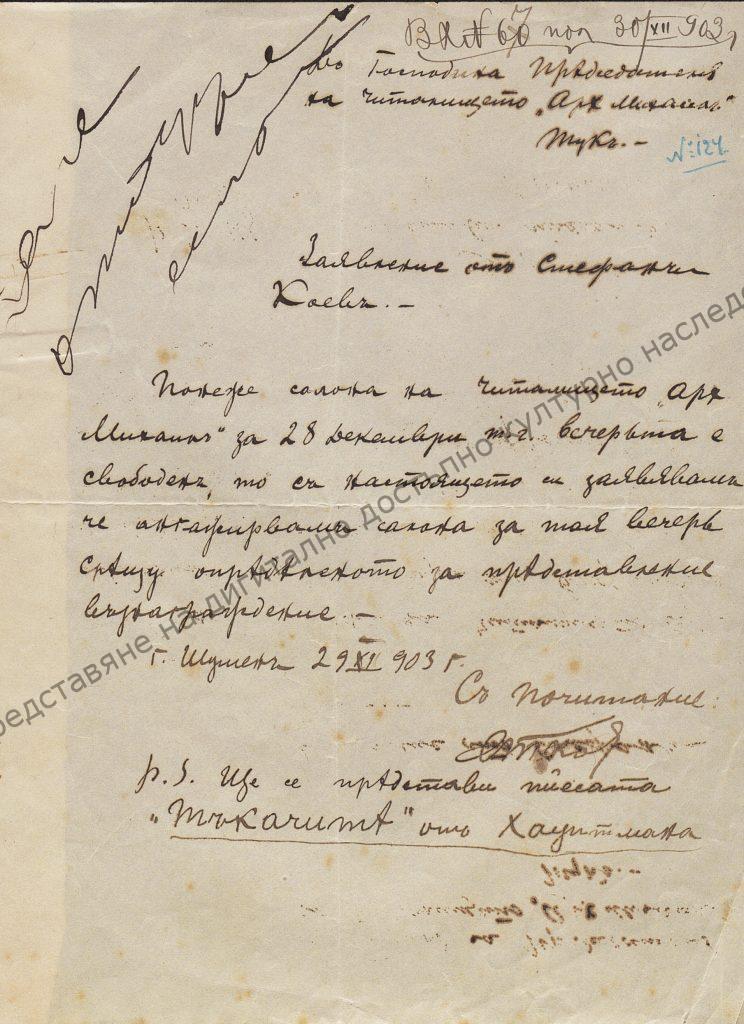 Вх № 67 на 30/XII 903
до Господина Прѣдседателя
на читалището „Арх Михаилъ“
Тукъ. –
№ 124.
Заявление отъ Стефанъ
Коевъ. –
Понеже салона на читалището „Арх
Михаилъ“ за 28 Декември т. г. вечерьта е
свободенъ, то съ настоящето си заявявамъ
че ангажирвамъ салона за тая вечерь
срѣщу опрѣдѣленото за прѣдставление
възнаграждение –
г. Шуменъ 29 XI 903 г.
Съ почитание:
p. s. Ще се прѣдстави пиесата
„Тъкачитѣ“ отъ Хауптмана
редставяне на дигитално достъпно културно наслед